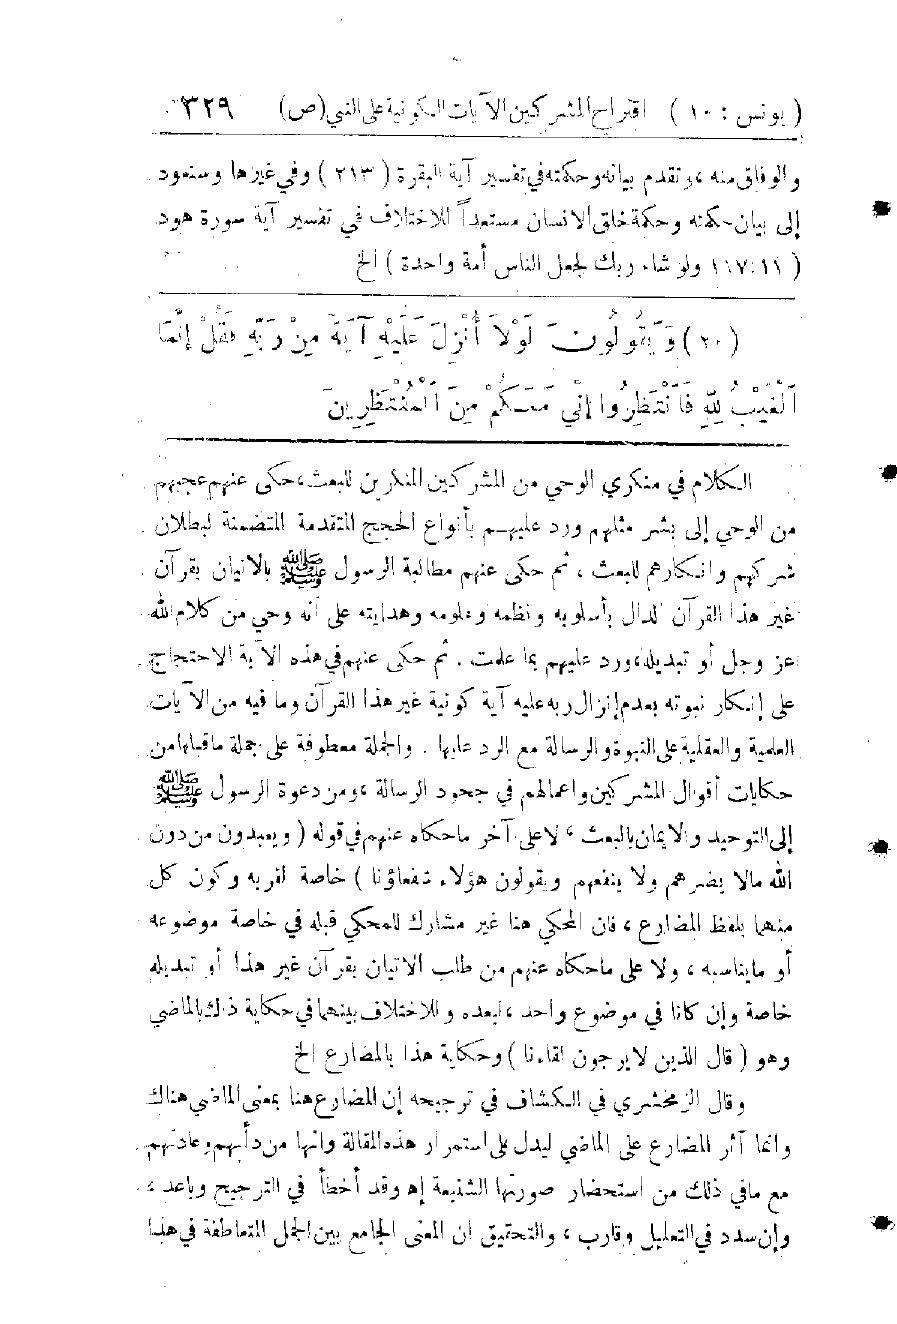 ( يونس : ١٠ ) اقتراح المشركين الآيات الكونية على النبي (ص) ٣٢٩
والوفاق منه ، وتقدم بيانه وحكمته في تفسير آية البقرة ( ٢١٣ ) وفي غيرها وسنعود
إلى بيان حكمته وحكمة خلق الانسان مستعداً للاختلاف في تفسير آية سورة هود
( ١١ : ١١٧ ولو شاء ربك لجعل الناس أمة واحدة ) الخ
(٢٠) وَيَقُولُونَ لَوْلاَ أُنْزِلَ عَلَيْهِ آيَةٌ مِنْ رَبِّهِ فَقُلْ إِنَّمَا
اَلْغَيْبُ لِلّهِ فَانْتَظِرُوا إِنِّي مَعَكُمْ مِنَ الْمُنْتَظِرِينَ
الكلام في منكري الوحي من المشركين المنكرين للبعث ، حكى عنهم عجبهم
من الوحي إلى بشر مثلهم ورد عليهم بأنواع الحجج المتقدمة المتضمنة لبطلان
شركهم وانكارهم للبعث ، ثم حكى عنهم مطالبة الرسول ﷺ بالاتيان بقرآن
غير هذا القرآن الدال بأسلوبه ونظمه وعلومه وهدايته على أنه وحي من كلام الله
عز وجل أو تبديله ، ورد عليهم بما علمت . ثم حكى عنهم في هذه الآية الاحتجاج
على إنكار نبوته بعدم إنزال ربه عليه آية كونية غير هذا القرآن وما فيه من الآيات
العلمية والعقلية على النبوة والرسالة مع الرد عليها . والجملة معطوفة على جملة ما قبلها من
حكايات أقوال المشركين واعمالهم في جحود الرسالة ، ومن دعوة الرسول ﷺ
إلى التوحيد والايمان بالبعث ، لا على آخر ما حكاه عنهم في قوله ( ويعبدون من دون
الله مالا يضرهم ولا ينفعهم ويقولون هؤلاء شفعاؤنا ) خاصة لقربه وكون كل
منهما بلفظ المضارع ، فان المحكي هنا غير مشارك للمحكي قبله في خاصة موضوعه
أو ما يناسبه ، ولا على ما حكاه عنهم من طلب الاتيان بقرآن غير هذا أو تبديله
خاصة وإن كانا في موضوع واحد ، لبعده وللاختلاف بينهما في حكاية ذلك بالماضي
وهو ( قال الذين لا يرجون لقاءنا ) وحكاية هذا بالمضارع الخ
وقال الزمخشري في الكشاف في ترجيحه إن المضارع هنا بمعنى الماضي هناك
وانما آثر المضارع على الماضي ليدل على استمرار هذه المقالة وانها من دأبهم وعادتهم
مع ما في ذلك من استحضار صورتها الشنيعة إه وقد أخطأ في الترجيح وباعد ،
وإن سدد في التعليل وقارب ، والتحقيق ان المعنى الجامع بين الجمل المتعاطفة في هذا